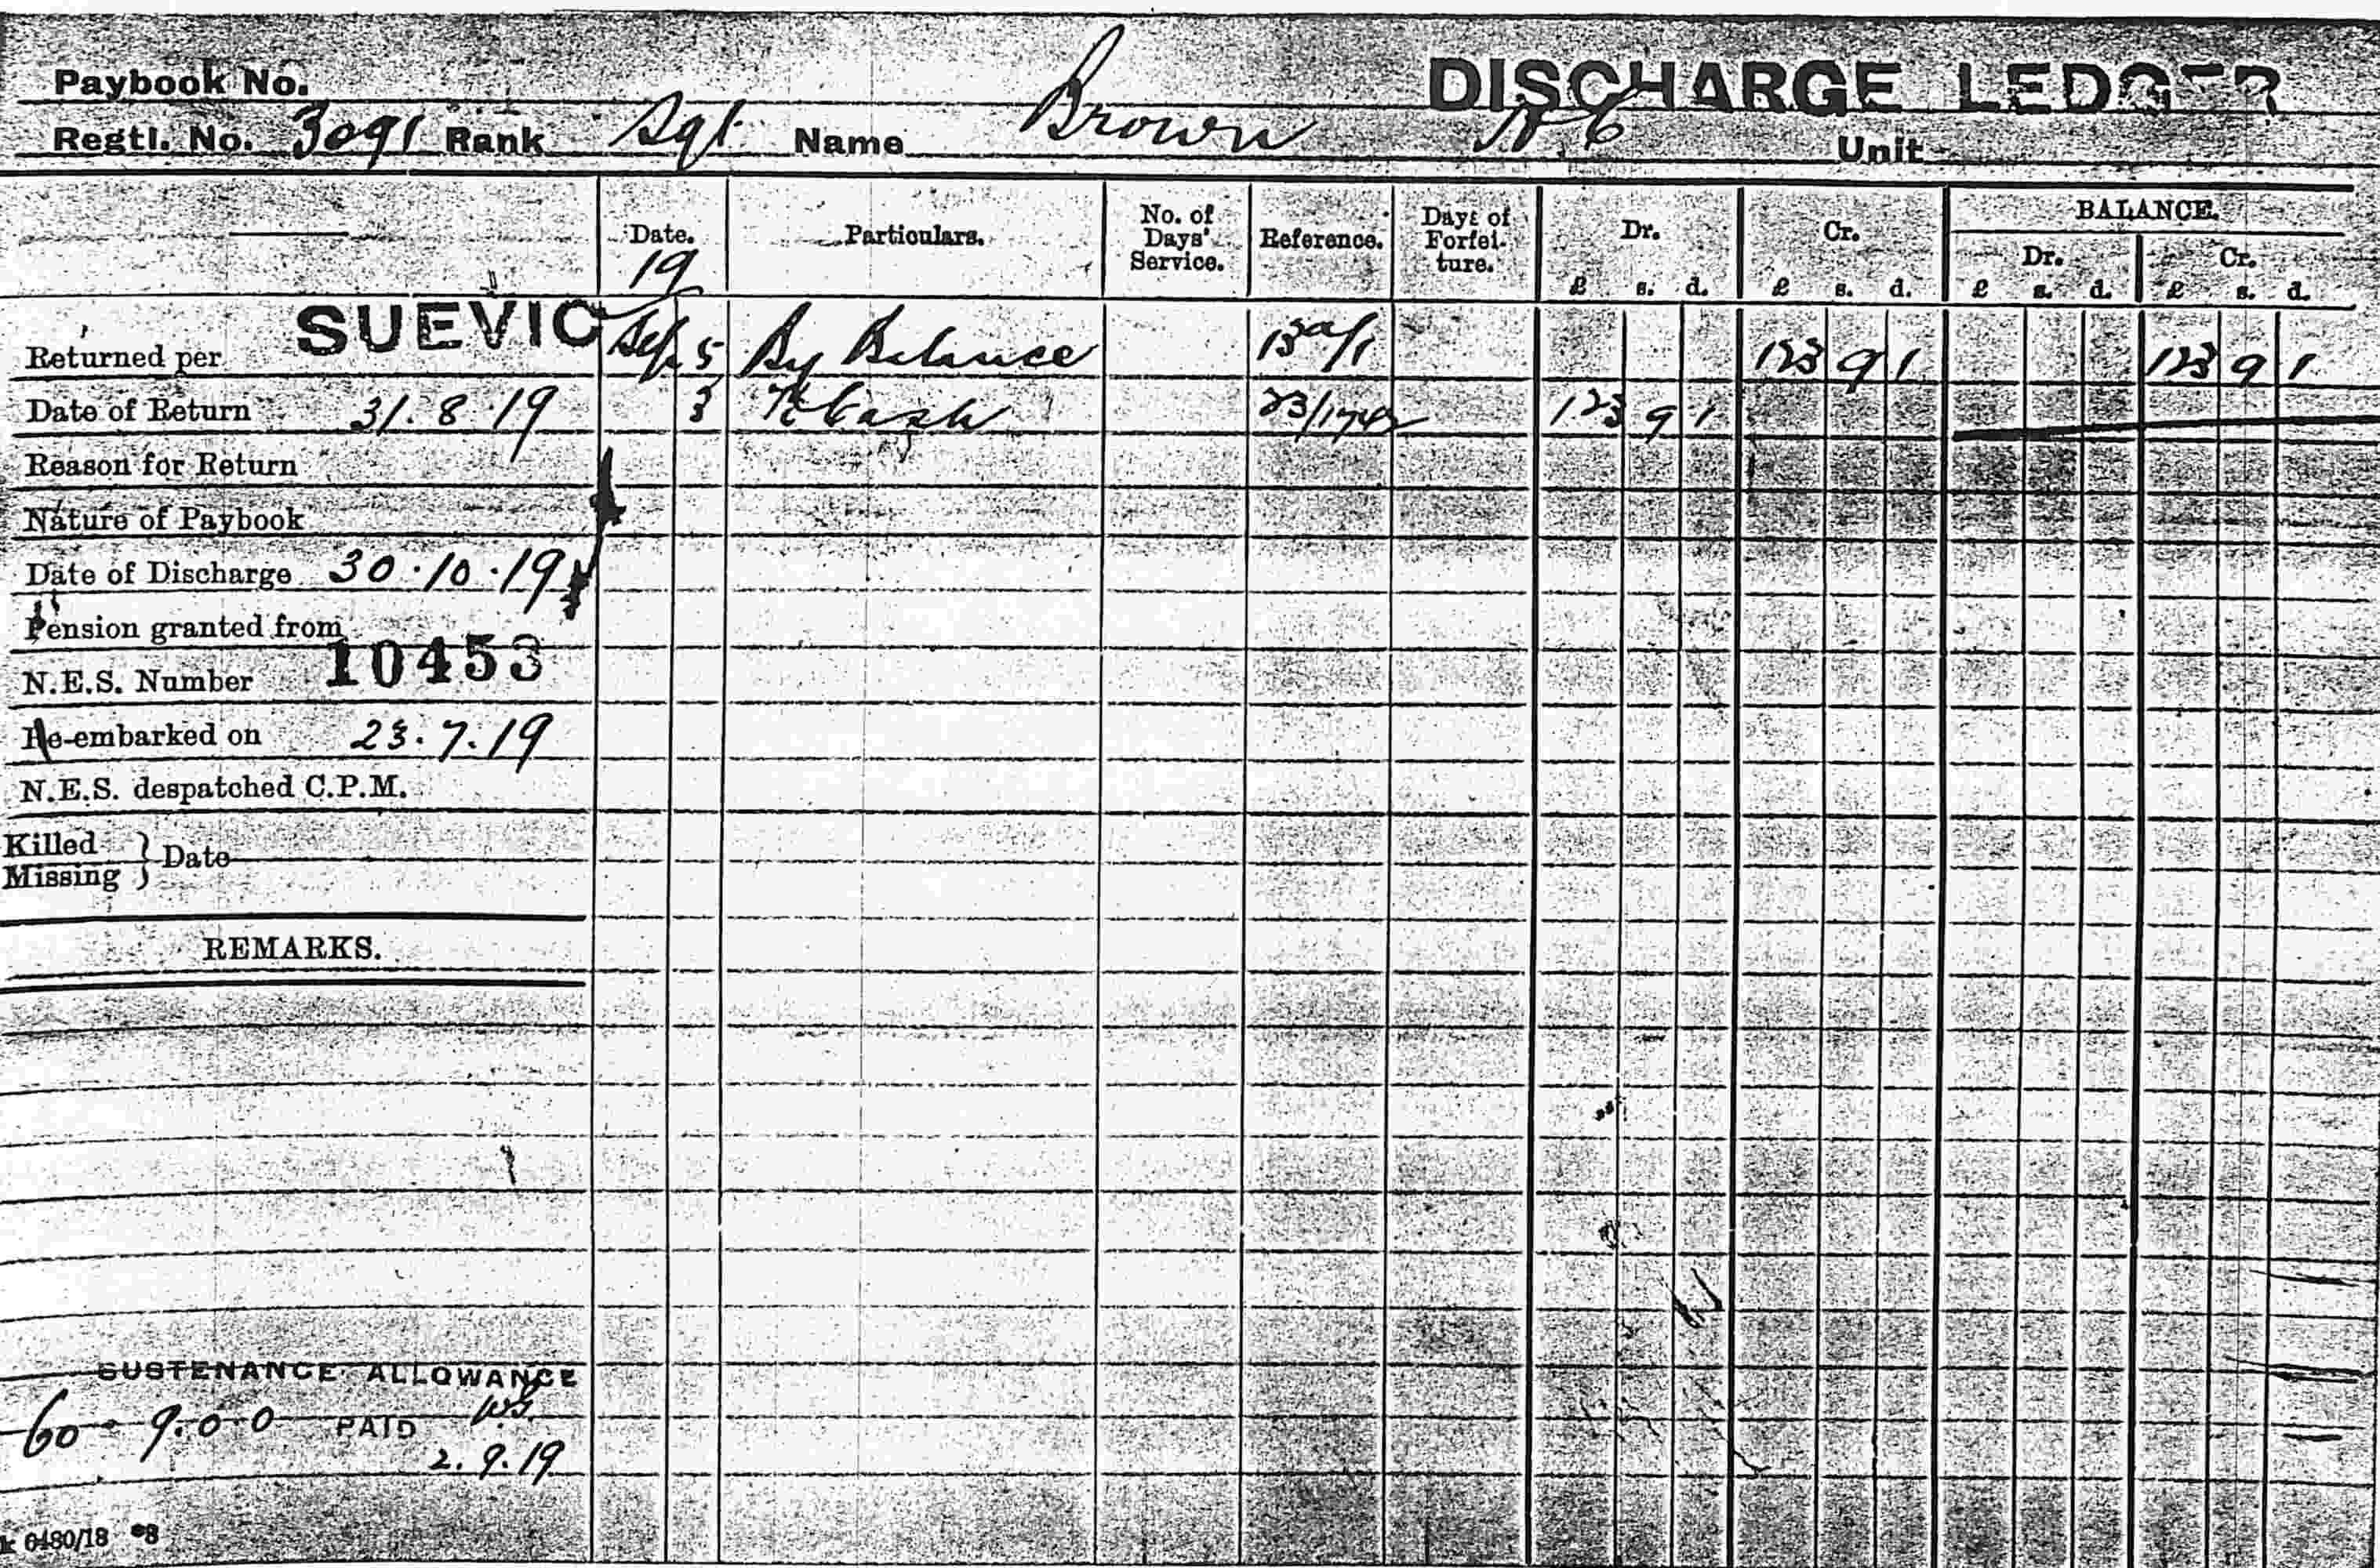 DISCHARGE LEDGER
Paybook No.
Regtl. No. 3091 Rank Sgt Name Brown Unit
Date. Particulars. No. of Days' Service. Reference. Days of Forfeiture. Dr. Cr. BALANCE.
Dr. Cr.
19
£ s. d. £ s. d. £ s. d. £ s. d.
Returned per SUEVIC Sep 5 By Balance 123 9 1 123 9 1
Date of Return 31.8.19 3 Cash 123 9 1
Reason for Return
Nature of Paybook
Date of Discharge 30.10.19
Pension granted from
N.E.S. Number 10453
Re-embarked on 23.7.19
N.E.S. despatched C.P.M.
Killed
Missing } Date
REMARKS.
SUSTENANCE ALLOWANCE
60 - 9.0.0 PAID
2.9.19
6480/18